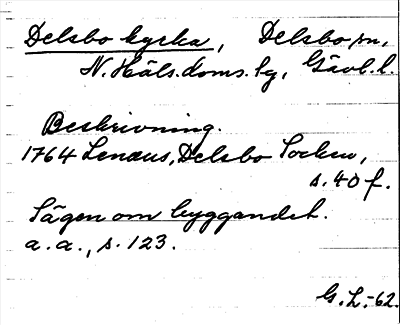 Delsbo kyrka, Delsbo sn,
N. Häls. doms. hg, Gävl. l.
Beskrivning.
1764 Lenæus, Delsbo Socken,
s. 40 f.
Sägen om byggandet.
a. a., s. 123.
G. L. -62.